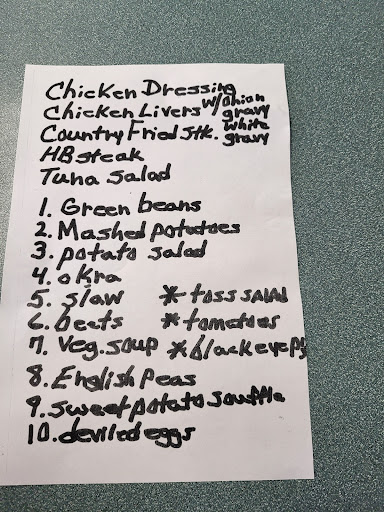 Chicken Dressing
Chicken Livers w/onion gravy
Country Fried Stk. white gravy
HB steak
Tuna salad
1. Green beans
2. Mashed potatoes
3. potato salad
4. okra
5. slaw * toss salad
6. beets * tomatoes
7. Veg. soup * black eye ps
8. English peas
9. sweet potato souffle
10. deviled eggs